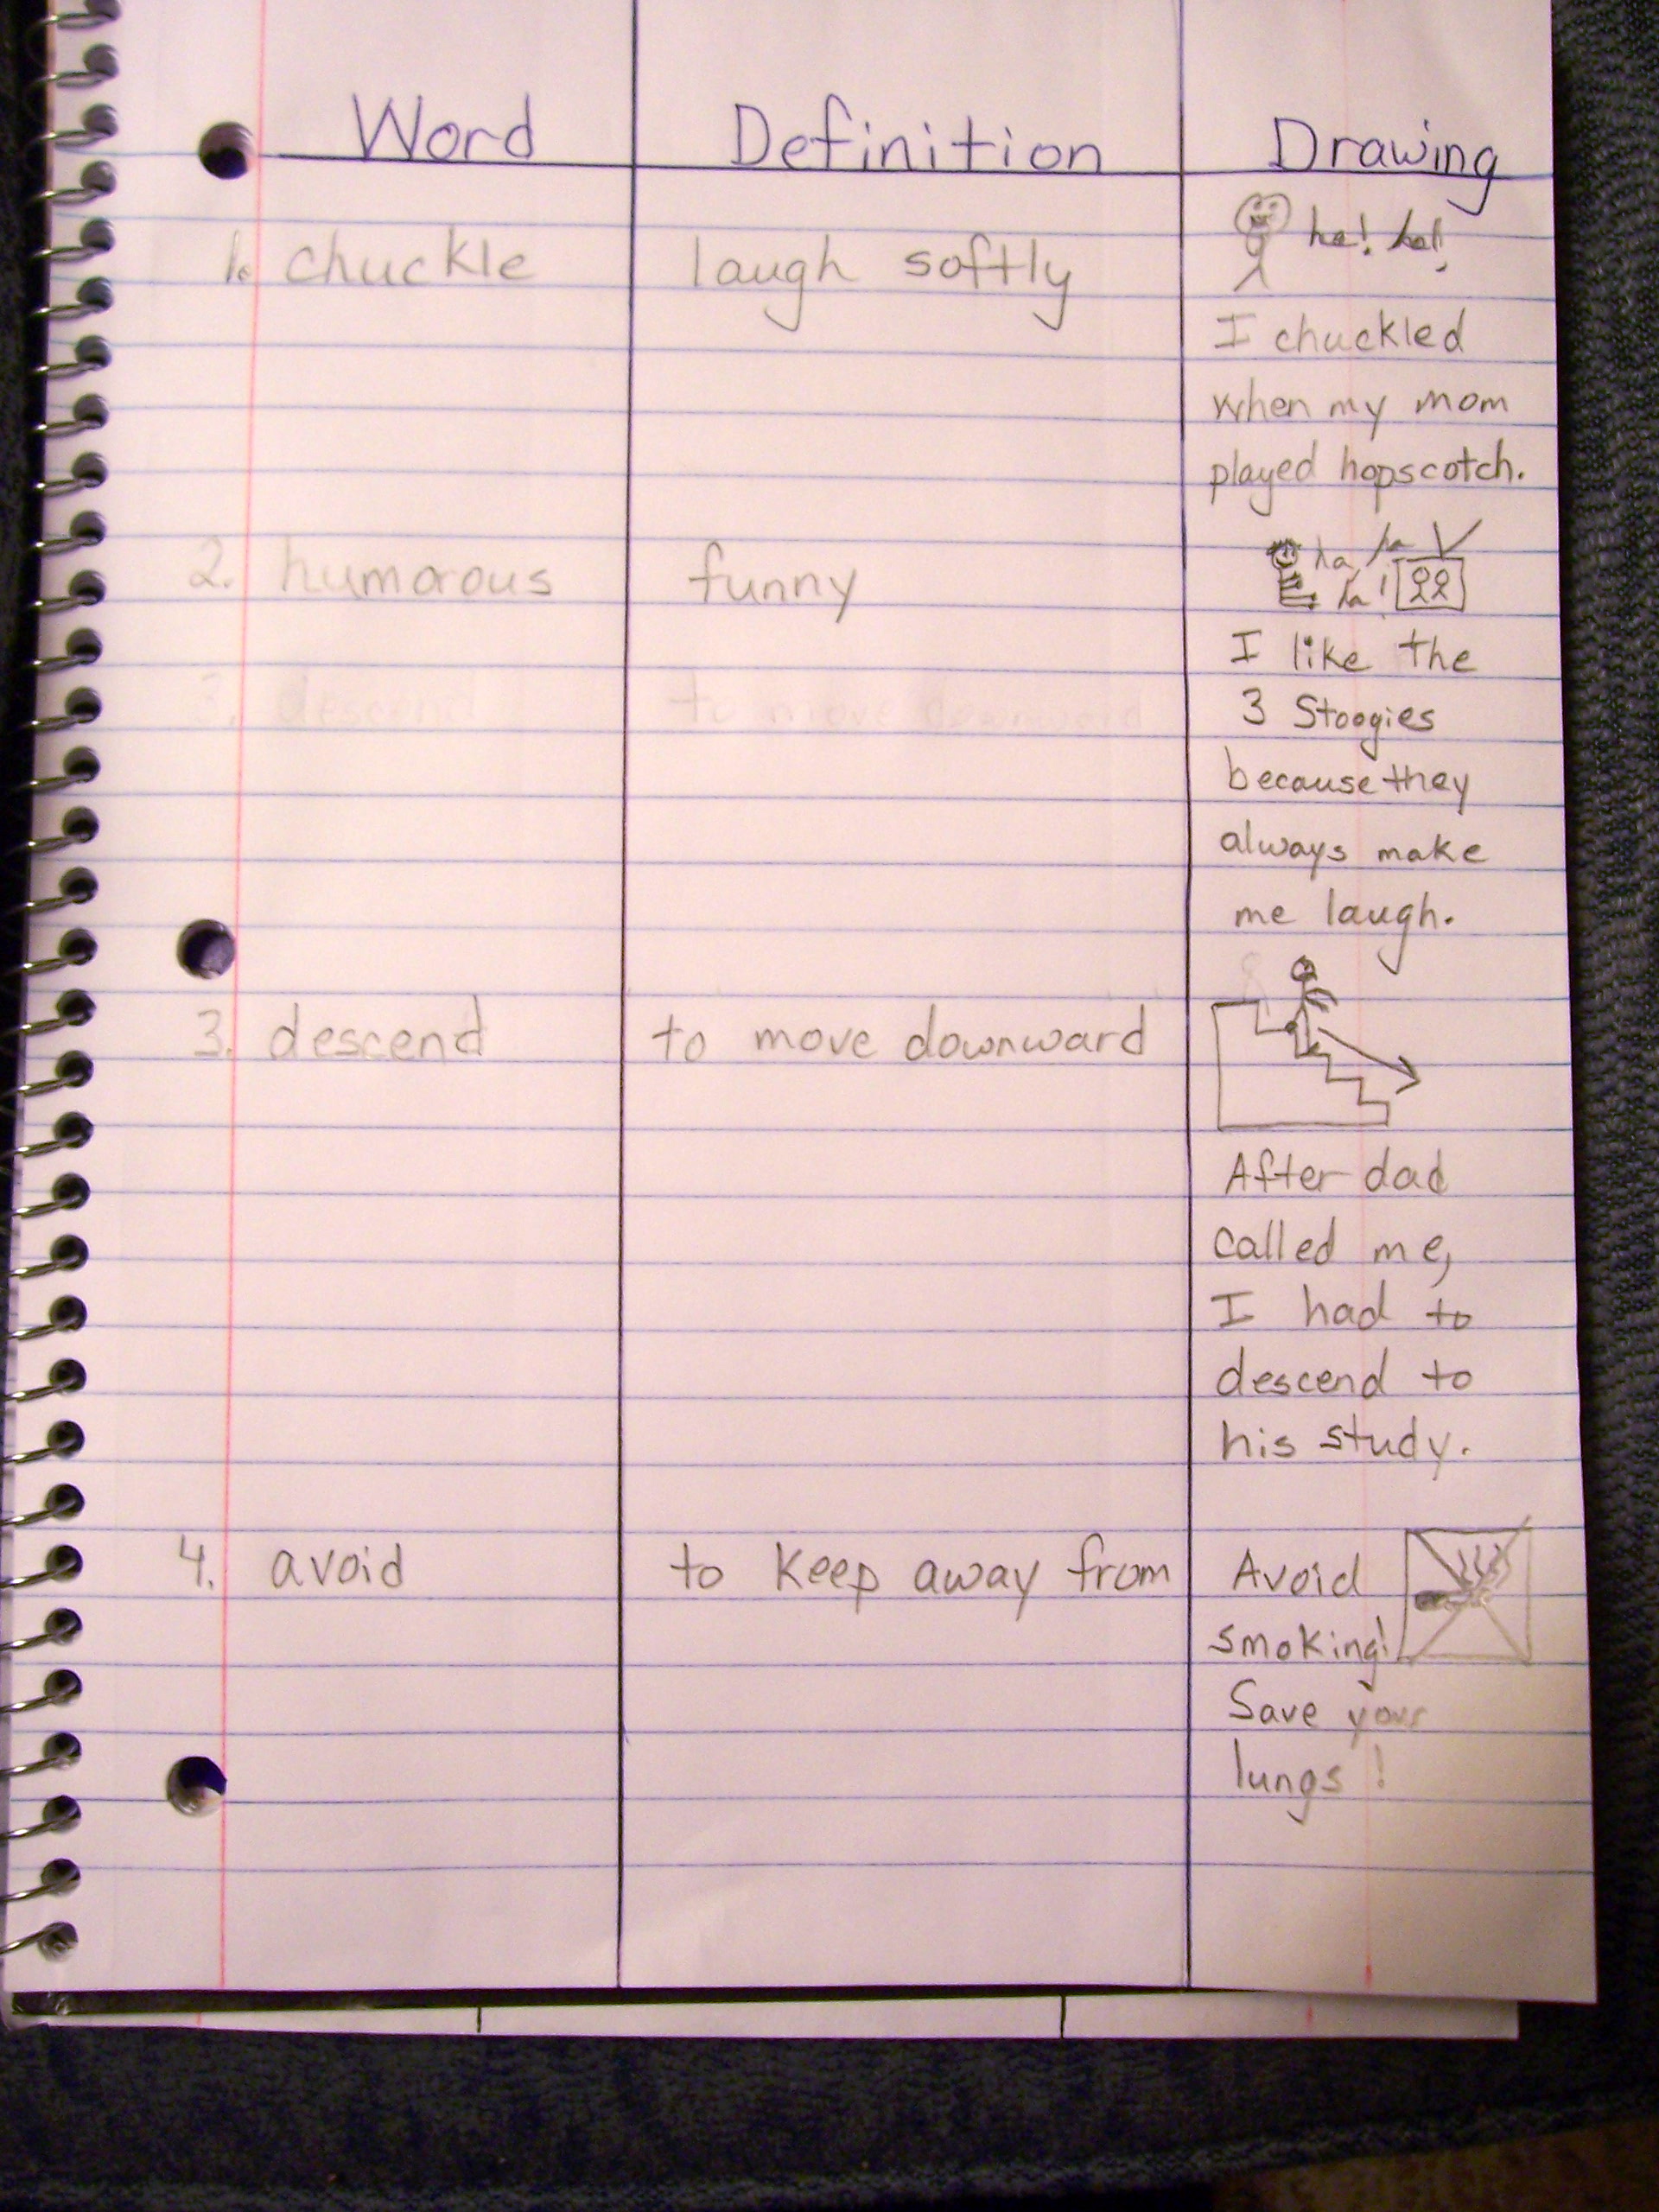 Word Definition Drawing
ha! ha!!
1. chuckle laugh softly
I chuckled
when my mom
played hopscotch.
ha ha
ha!
2. humorous funny
I like the
3 Stoogies
3. descend to move downward
because they
always make
me laugh.
3. descend to move downward
After dad
called me,
I had to
descend to
his study.
4. avoid to keep away from Avoid
smoking!
Save your
lungs!